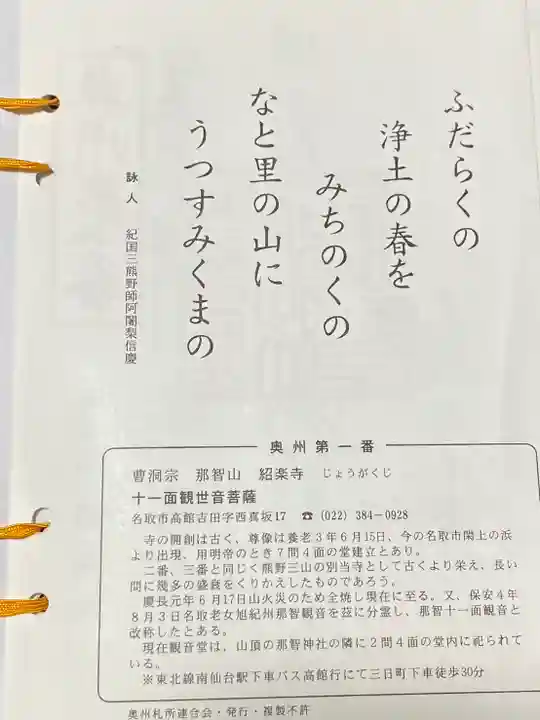 ふだらくの
浄土の春を
みちのくの
なと里の山に
うつすみくまの
詠人 紀国三熊野師阿闍梨信慶
奥州第一番
曹洞宗 那智山 紹楽寺 じょうがくじ
十一面観世音菩薩
名取市高館吉田字西真坂17 ☎(022)384-0928
寺の開創は古く、尊像は養老3年6月15日、今の名取市閖上の浜
より出現、用明帝のとき7間4面の堂建立とあり。
二番、三番と同じく熊野三山の別当寺として古くより栄え、長い
間に幾多の盛衰をくりかえしたものであろう。
慶長元年6月17日山火災のため全焼し現在に至る。又、保安4年
8月3日名取老女旭紀州那智観音を茲に分霊し、那智十一面観音と
改称したとある。
現在観音堂は、山頂の那智神社の隣に2間4面の堂内に祀られて
いる。
※東北線南仙台駅下車バス高館行にて三日町下車徒歩30分
奥州札所連合会・発行・複製不許